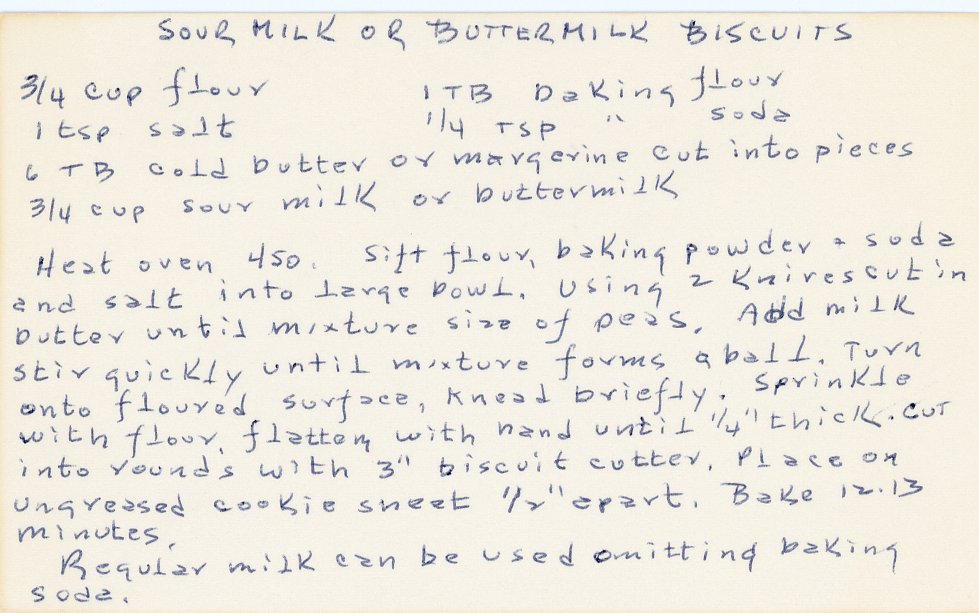 SOUR MILK OR BUTTERMILK BISCUITS
3/4 cup flour 1 TB baking flour
1 tsp salt 1/4 TSP " soda
6 TB cold butter or margerine cut into pieces
3/4 cup sour milk or buttermilk
Heat oven 450. Sift flour, baking powder + soda
and salt into large bowl. Using 2 Knives cut in
butter until mixture size of peas. Add milk
stir quickly until mixture forms a ball. Turn
onto floured surface, Knead briefly. Sprinkle
with flour, flatten with hand until 1/4" thick. CUT
into rounds with 3" biscuit cutter. Place on
ungreased cookie sheet 1/2" apart. Bake 12-13
minutes.
Regular milk can be used omitting baking
soda.